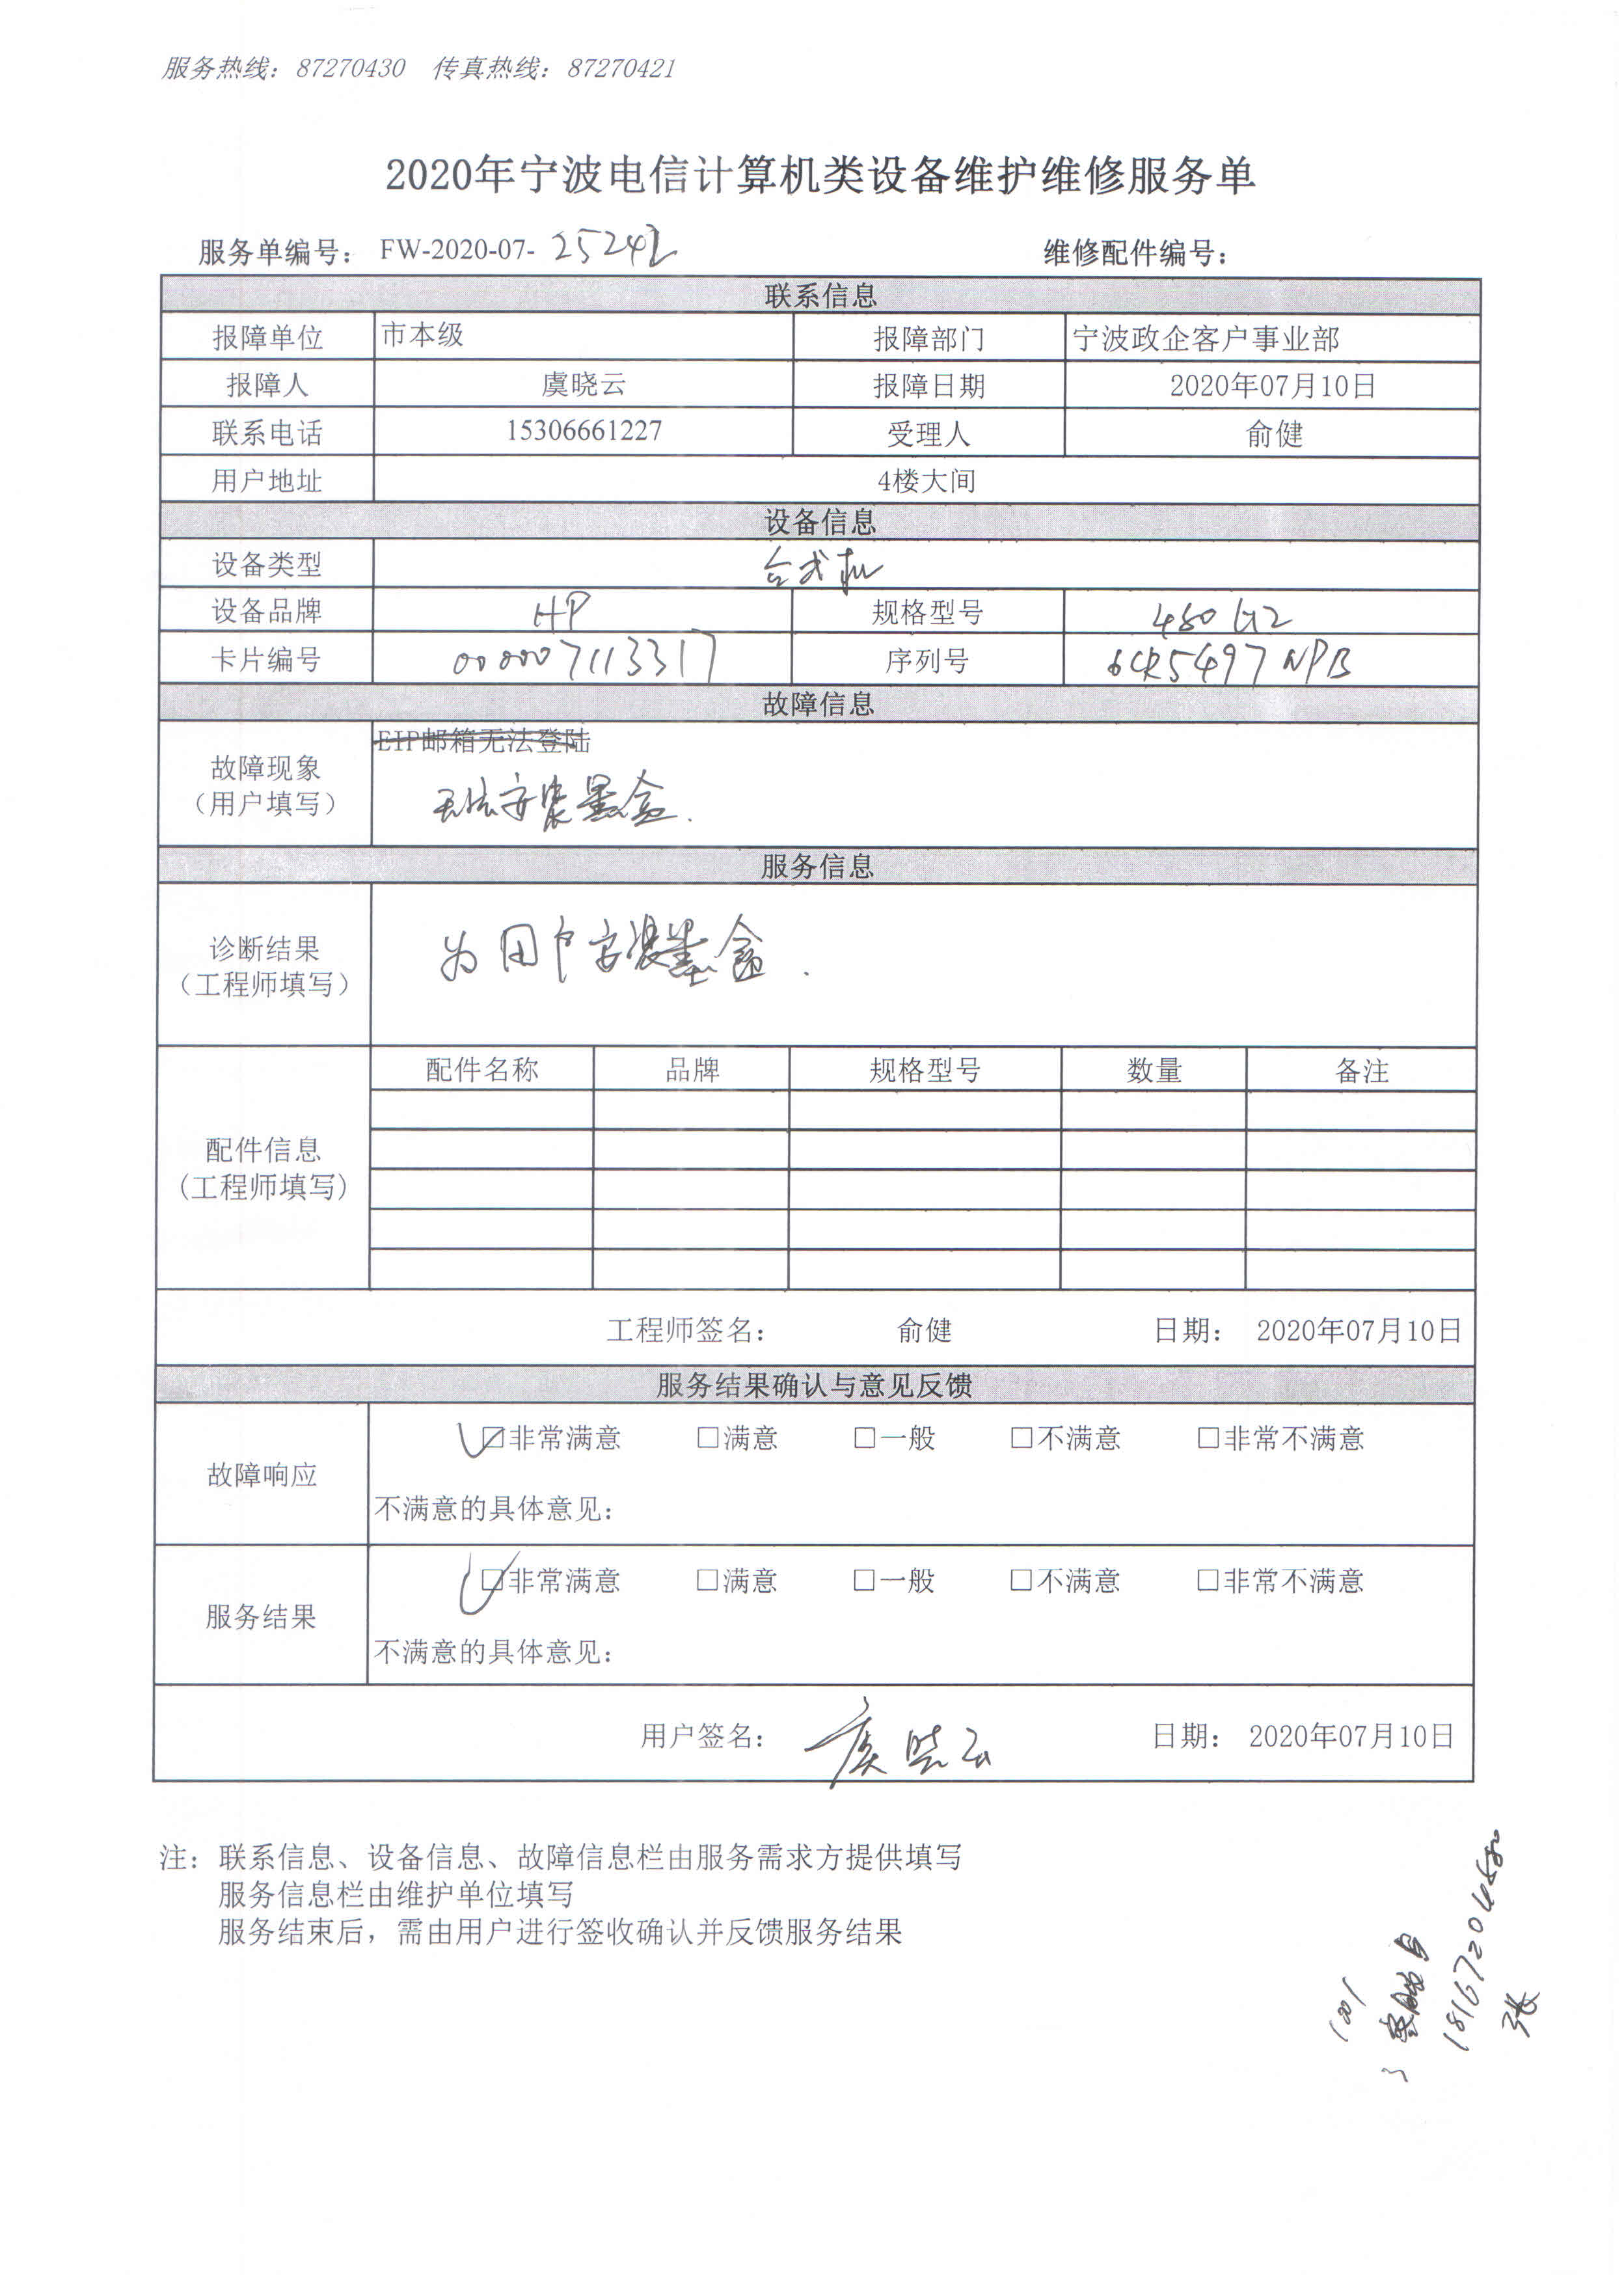 服务热线：87270430 传真热线：87270421
2020年宁波电信计算机类设备维护维修服务单
服务单编号： FW-2020-07- 25242 维修配件编号：
联系信息
报障单位 市本级 报障部门 宁波政企客户事业部
报障人 虞晓云 报障日期 2020年07月10日
联系电话 15306661227 受理人 俞健
用户地址 4楼大间
设备信息
设备类型 台式机
设备品牌 HP 规格型号 480 G2
卡片编号 000007113317 序列号 6CR5497NPB
故障信息
EIP邮箱无法登陆
故障现象
（用户填写）
无法安装墨盒.
服务信息
诊断结果
（工程师填写）
为用户安装墨盒.
配件信息
（工程师填写）
配件名称 品牌 规格型号 数量 备注
工程师签名： 俞健 日期： 2020年07月10日
服务结果确认与意见反馈
故障响应
☑非常满意 □满意 □一般 □不满意 □非常不满意
不满意的具体意见：
服务结果
☑非常满意 □满意 □一般 □不满意 □非常不满意
不满意的具体意见：
用户签名： 虞晓云 日期： 2020年07月10日
注：联系信息、设备信息、故障信息栏由服务需求方提供填写
服务信息栏由维护单位填写
服务结束后，需由用户进行签收确认并反馈服务结果
1001
张